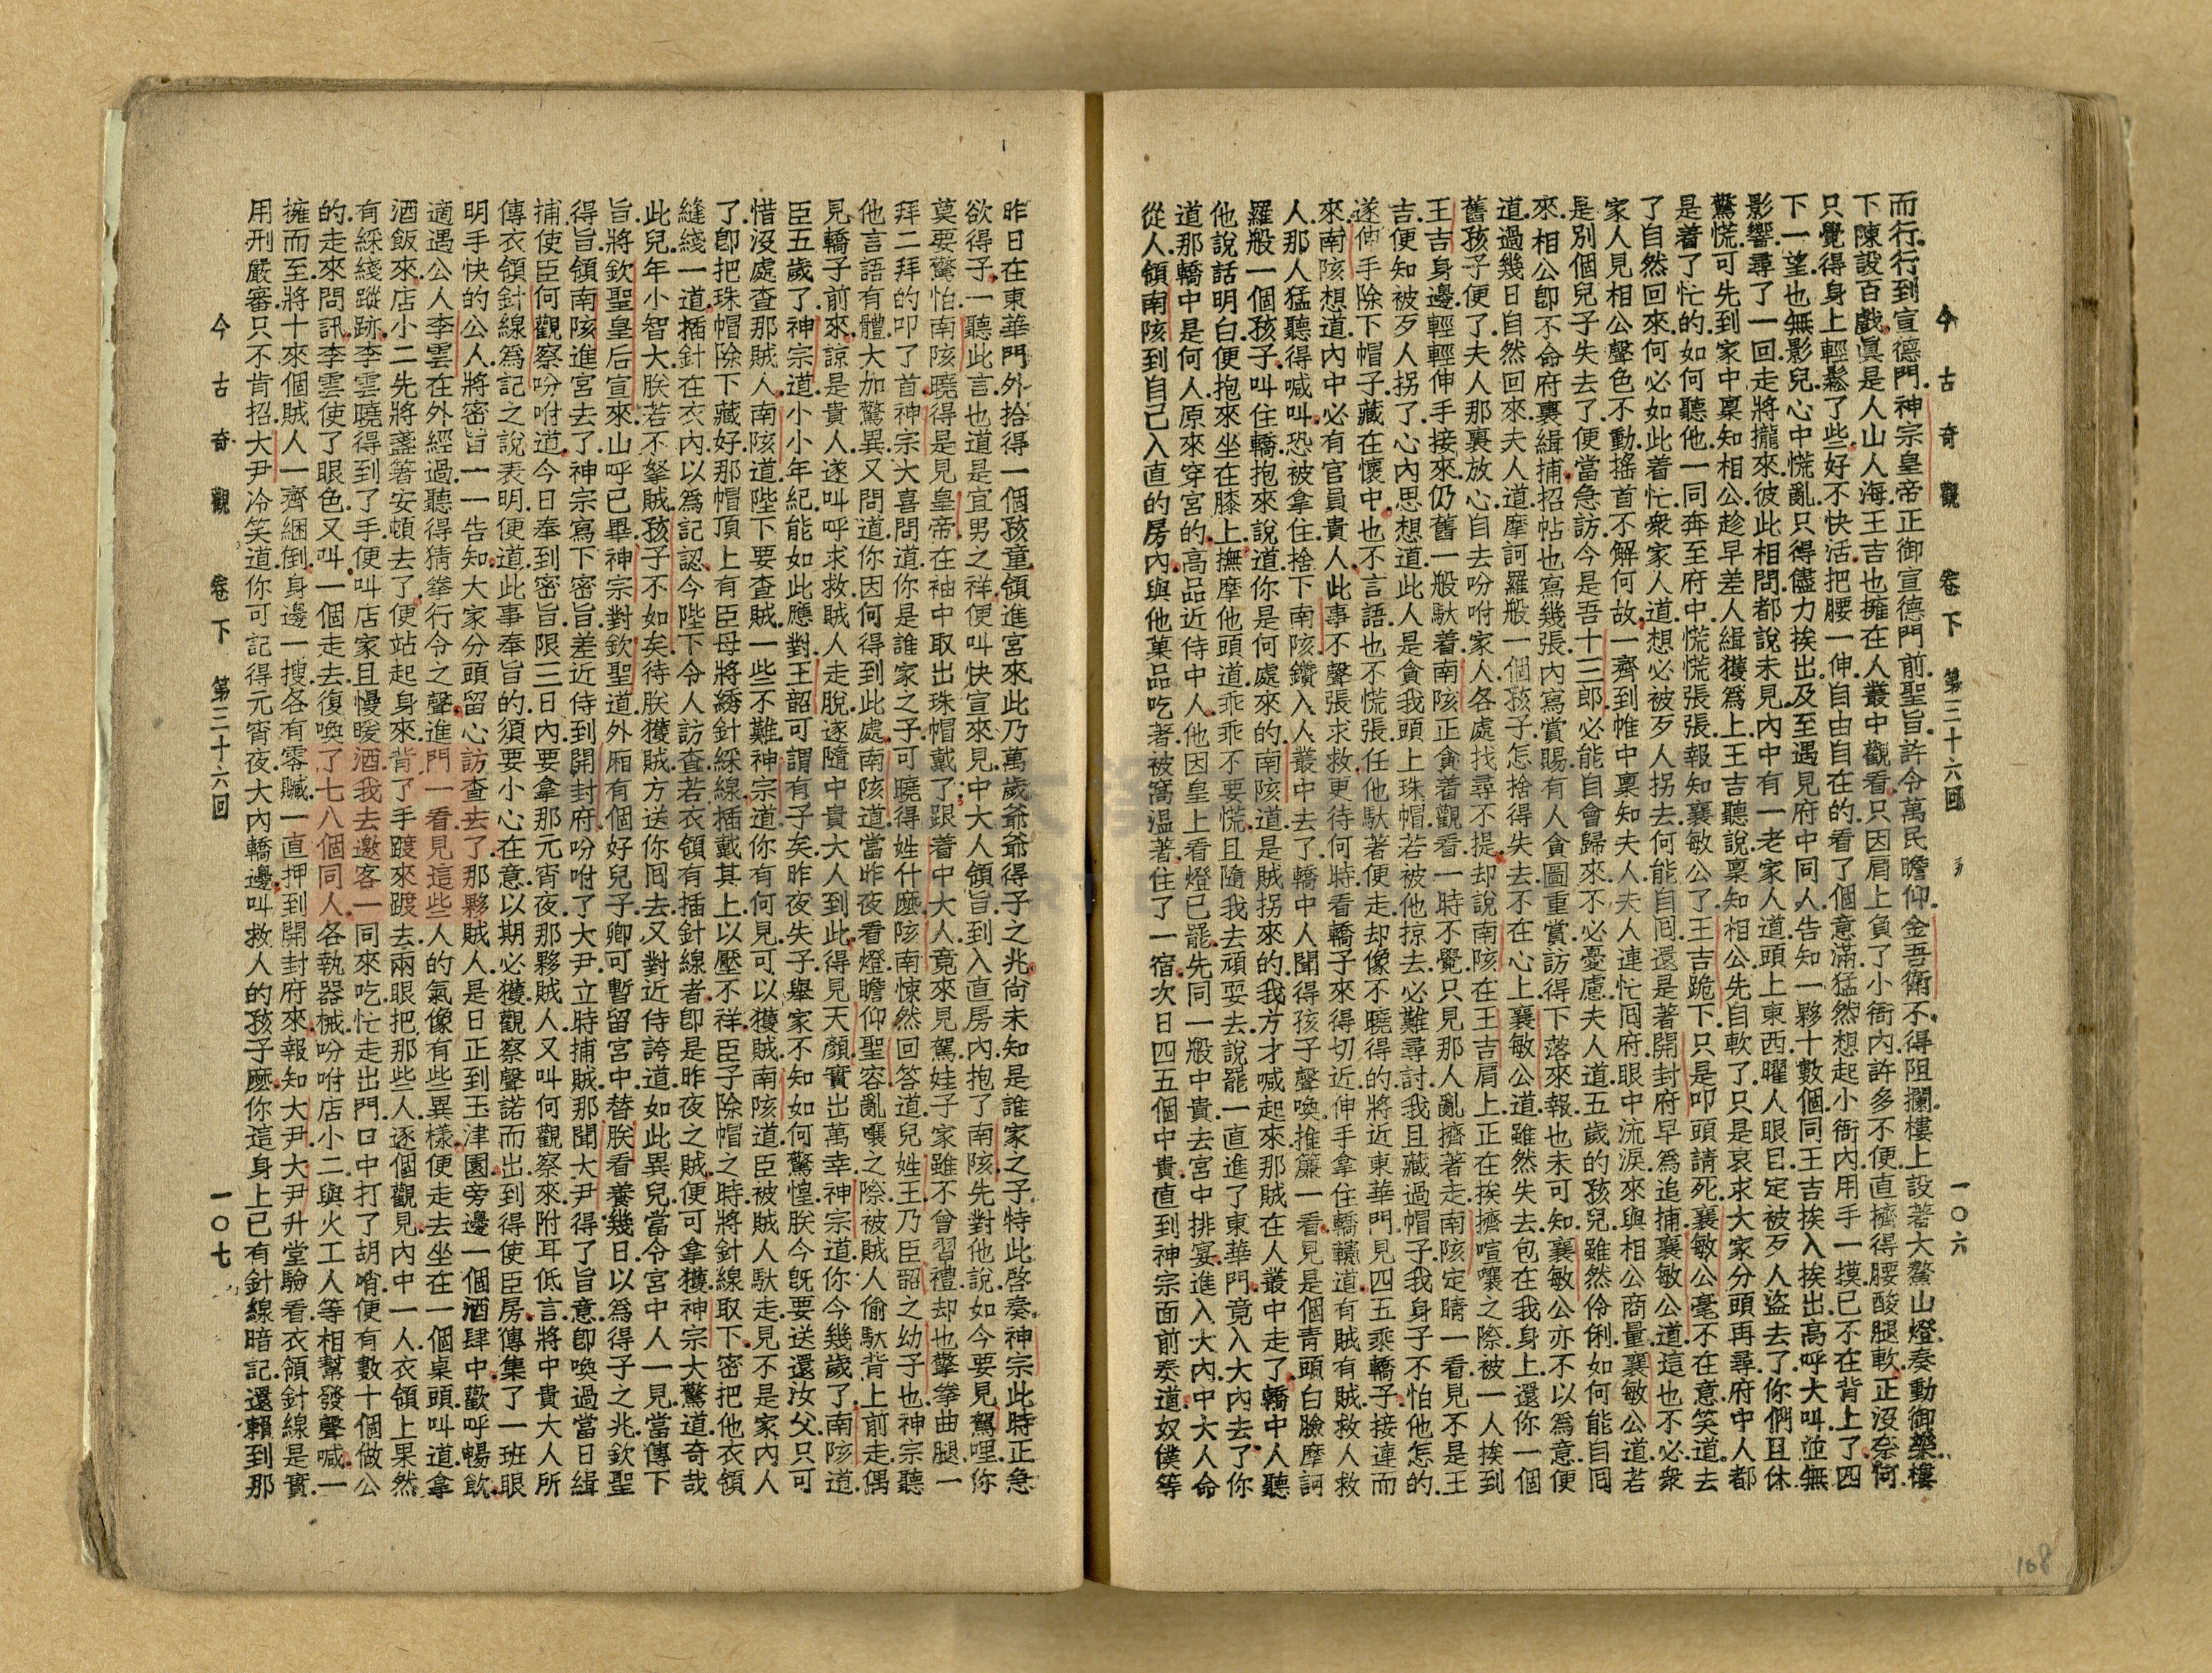 今古奇觀 卷下 第三十六回 一〇六
而行.行到宣德門.神宗皇帝正御宣德門前.聖旨.許令萬民瞻仰.金吾衛不得阻攔.樓上設著大鰲山燈.奏動御樂.樓
下陳設百戲.眞是人山人海.王吉也擁在人叢中觀看.只因肩上負了小衙內.許多不便.直擠得腰酸腿軟.正沒奈何.
只覺得身上輕鬆了些.好不快活.把腰一伸.自由自在的.看了個意滿.猛然想起小衙內.用手一摸.已不在背上了.四
下一望.也無影兒.心中慌亂.只得儘力挨出.及至遇見府中同人.告知一夥十數個.同王吉挨入挨出.高呼大叫.並無
影響.尋了一回.走將攏來.彼此相問.都說未見.內中有一老家人道.頭上東西.曜人眼目.定被歹人盜去了.你們且休
驚慌.可先到家中稟知相公.趁早差人緝獲爲上.王吉聽說稟知相公.先自軟了.只是哀求大家分頭再尋.府中人都
是着了忙的.如何聽他.一同奔至府中.慌慌張張.報知襄敏公了.王吉跪下.只是叩頭請死.襄敏公毫不在意.笑道.去
了自然回來.何必如此着忙.衆家人道.想必被歹人拐去.何能自囘.還是著開封府早爲追捕.襄敏公道.這也不必.衆
家人見相公聲色不動.搖首不解何故.一齊到帷中稟知夫人.夫人連忙囘府.眼中流淚.來與相公商量.襄敏公道.若
是別個兒子失去了.便當急訪.今是吾十三郎.必能自會歸來.不必憂慮.夫人道.五歲的孩兒.雖然伶俐.如何能自囘
來.相公卽不命府裏緝捕.招帖也寫幾張.內寫賞賜.有人貪圖重賞.訪得下落來報.也未可知.襄敏公亦不以爲意.便
道.過幾日自然回來.夫人道.摩訶羅般一個孩子.怎捨得失去.不在心上.襄敏公道.雖然失去.包在我身上.還你一個
舊孩子便了.夫人那裏放心.自去吩咐家人.各處找尋不提.却說南陔在王吉肩上.正在挨擠喧嚷之際.被一人挨到
王吉身邊.輕輕伸手接來.仍舊一般馱着.南陔正貪着觀看.一時不覺.只見那人亂擠著走.南陔定睛一看.見不是王
吉.便知被歹人拐了.心內思想道.此人是貪我頭上珠帽.若被他掠去.必難尋討.我且藏過帽子.我身子不怕他怎的.
遂伸手除下帽子.藏在懷中.也不言語.也不慌張.任他馱著便走.却像不曉得的.將近東華門.見四五乘轎子.接連而
來.南陔想道.內中必有官員貴人.此事不聲張求救.更待何時.看轎子來得切近.伸手拿住轎轅道.有賊有賊.救人救
人.那人猛聽得喊叫.恐被拿住.捨下南陔.鑽入人叢中去了.轎中人聞得孩子聲喚.推簾一看.見是個青頭白臉摩訶
羅般一個孩子.叫住轎抱來.說道.你是何處來的.南陔道.是賊拐來的.我方才喊起來.那賊在人叢中走了.轎中人聽
他說話明白.便抱來坐在膝上.撫摩他頭道.乖乖不要慌.且隨我去頑耍去.說罷.一直進了東華門.竟入大內去了.你
道那轎中是何人.原來穿宮的.高品近侍中人.他因皇上看燈已罷.先同一般中貴.去宮中排宴.進入大內.中大人命
從人.領南陔到自己入直的房內.與他菓品吃著.被窩溫著.住了一宿.次日四五個中貴.直到神宗面前奏道.奴僕等
昨日在東華門外.拾得一個孩童.領進宮來.此乃萬歲爺爺得子之兆.尙未知是誰家之子.特此啓奏.神宗此時正急
欲得子.一聽此言.也道是宜男之祥.便叫快宣來見.中大人領旨.到入直房內.抱了南陔.先對他說.如今要見駕哩.你
莫要驚怕.南陔曉得是見皇帝.在袖中取出珠帽戴了.跟着中大人.竟來見駕.娃子家雖不曾習禮.却也擎拳曲腿.一
拜二拜的叩了首.神宗大喜.問道.你是誰家之子.可曉得姓什麽.陔南悚然回答道.兒姓王.乃臣韶之幼子也.神宗聽
他言語有體.大加驚異.又問道.你因何得到此處.南陔道.當昨夜看燈.瞻仰聖容.亂嚷之際.被賊人偷馱背上前走.偶
見轎子前來.諒是貴人.遂叫呼求救.賊人走脫.遂隨中貴大人到此.得見天顏.實出萬幸.神宗道.你今幾歲了.南陔道.
臣五歲了.神宗道.小小年紀.能如此應對.王韶可謂有子矣.昨夜失子.舉家不知如何驚惶.朕今旣要送還汝父.只可
惜沒處查那賊人.南陔道.陛下要查賊.一些不難.神宗道.你有何見.可以獲賊.南陔道.臣被賊人馱走.見不是家內人
了.卽把珠帽除下藏好.那帽頂上有臣母將綉針綵線.插戴其上.以壓不祥.臣子除帽之時.將針線取下.密把他衣領
縫綫一道.插針在衣內.以爲記認.今陛下令人訪查.若衣領有插針線者.卽是昨夜之賊.便可拿獲.神宗大驚道.奇哉
此兒.年小智大.朕若不拏賊.孩子不如矣.待朕獲賊.方送你囘去.又對近侍誇道.如此異兒.當令宮中人一見.當傳下
旨.將欽聖皇后宣來.山呼已畢.神宗對欽聖道.外廂有個好兒子.卿可暫留宮中.替朕看養幾日.以爲得子之兆.欽聖
得旨.領南陔進宮去了.神宗寫下密旨.差近侍到開封府.吩咐了大尹.立時捕賊.那聞大尹得了旨意.卽喚過當日緝
捕使臣何觀察.吩咐道.今日奉到密旨.限三日內要拿那元宵夜那夥賊人.又叫何觀察來.附耳低言.將中貴大人所
傳衣領針線爲記之說表明.便道.此事奉旨的.須要小心在意.以期必獲.觀察聲諾而出.到得使臣房.傳集了一班眼
明手快的公人.將密旨一一告知.大家分頭.留心訪查去了.那夥賊人.是日正到玉津園旁邊一個酒肆中.歡呼暢飲.
適遇公人李雲在外經過.聽得猜拳行令之聲.進門一看.見這些人的氣像有些異樣.便走去坐在一個桌頭.叫道拿
酒飯來.店小二先將盞箸安頓去了.便站起身來.背了手.踱來踱去.兩眼把那些人.逐個觀見.內中一人.衣領上果然
有綵綫蹤跡.李雲曉得到了手.便叫店家且慢暖酒.我去邀客一同來吃.忙走出門.口中打了胡哨.便有數十個做公
的走來問訊.李雲使了眼色.又叫一個走去.復喚了七八個同人.各執器械.吩咐店小二.與火工人等相幫.發聲喊.一
擁而至.將十來個賊人.一齊綑倒.身邊一搜.各有零贓.一直押到開封府來.報知大尹.大尹升堂驗看.衣領針線是實.
用刑嚴審.只不肯招.大尹冷笑道.你可記得元宵夜大內轎邊.叫救人的孩子麽.你這身上已有針線暗記.還賴到那
今古奇觀 卷下 第三十六回 一〇七
168